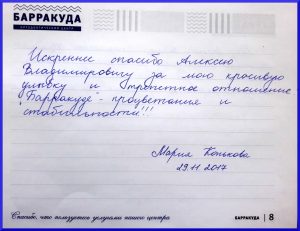 БАРРАКУДА
СТОМАТОЛОГИЧЕСКИЙ ЦЕНТР
Искреннее спасибо Алексею
Владимировичу за мою красивую
улыбку и трепетное отношение
"Барракуде - процветания и
стабильности!!!
Мария Конькова
29.11.2017
Спасибо, что пользуетесь услугами нашего центра
БАРРАКУДА | 8